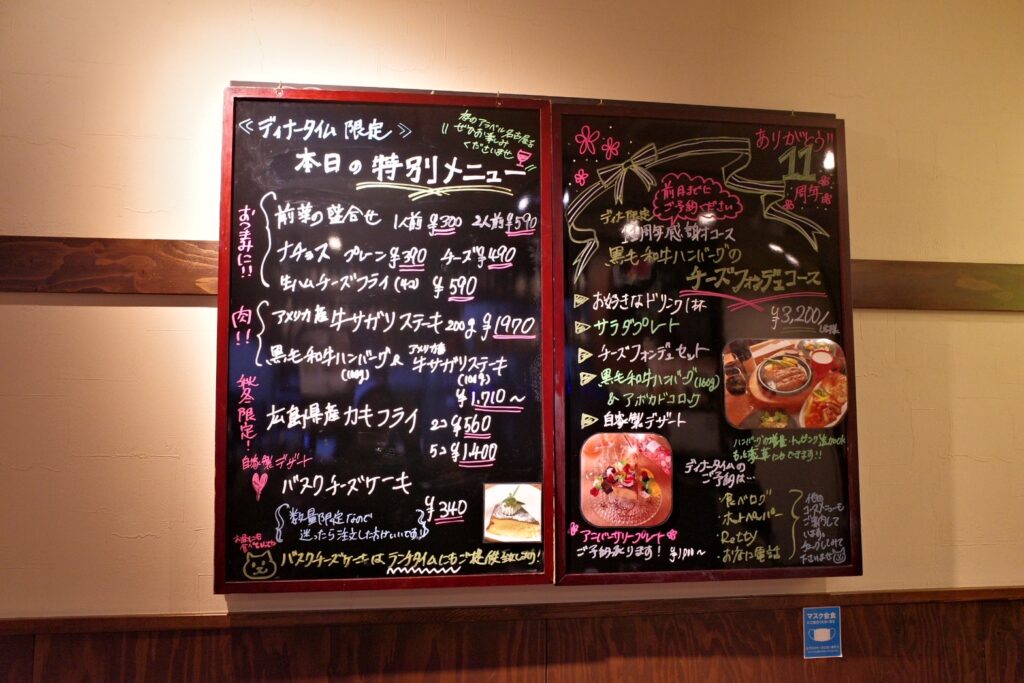 ≪ディナータイム 限定≫
ぜひお楽しみ
くださいませ
本日の 特別メニュー
おつまみに!!
前菜の盛合せ 1人前 ¥300 2人前 ¥590
ナチョス プレーン ¥390 チーズ ¥490
生ハムチーズフライ(4コ) ¥590
肉!!
アメリカ産 牛サガリステーキ 200g ¥1970
黒毛和牛ハンバーグ & アメリカ産 牛サガリステーキ
(100g) (100g)
¥1,710〜
秋冬限定!
広島県産カキフライ 2コ ¥560
5コ ¥1,400
自家製デザート
バスクチーズケーキ ¥340
数量限定なので
迷ったら注文した方がいいです!
バスクチーズケーキは ランチタイムにもご提供致します!
ありがとう!!
11
周年
前日までに
ご予約ください
ディナー限定
11周年感謝コース
黒毛和牛ハンバーグの
チーズフォンデュコース
¥3,200/1名様
お好きなドリンク1杯
サラダプレート
チーズフォンデュセット
黒毛和牛ハンバーグ(160g)
& アボカドコロッケ
自家製デザート
ハンバーグの増量・トッピング追加OK
ディナータイムの
ご予約は…
・食べログ
・ホットペッパー
・Retty
・お店に電話
他の
コースメニューも
ご案内して
います。
チェックしてみて
下さいませ
アニバーサリープレート
ご予約承ります! ¥1,000〜
マスク会食